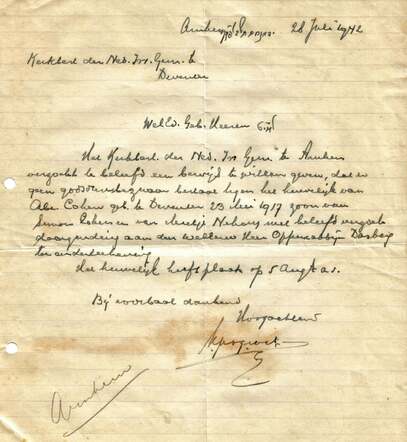 Arnhem 28 Juli 1942
Kerkbest der Ned. Isr. Gem. te
Deventer
WelEd. Geb. Heeren
Het Kerkbest. der Ned. Isr Gem. te Arnhem
verzocht te beleefd een bewijs te willen geven, dat er
geen godsdienstbezwaar bestaat tegen het huwelijk van
Abr. Cohen geb. te Deventer 23 Mei 1917 zoon van
Simon Cohen en van Mentje Nehers, met beleefd verzoek
doorzending aan den weleerw Heer Opperrabbijn Dasberg
ter onderteekening
Het huwelijk heeft plaats op 5 Aug a.s.
Bij voorbaat dankend
Hoogachtend
Arnhem